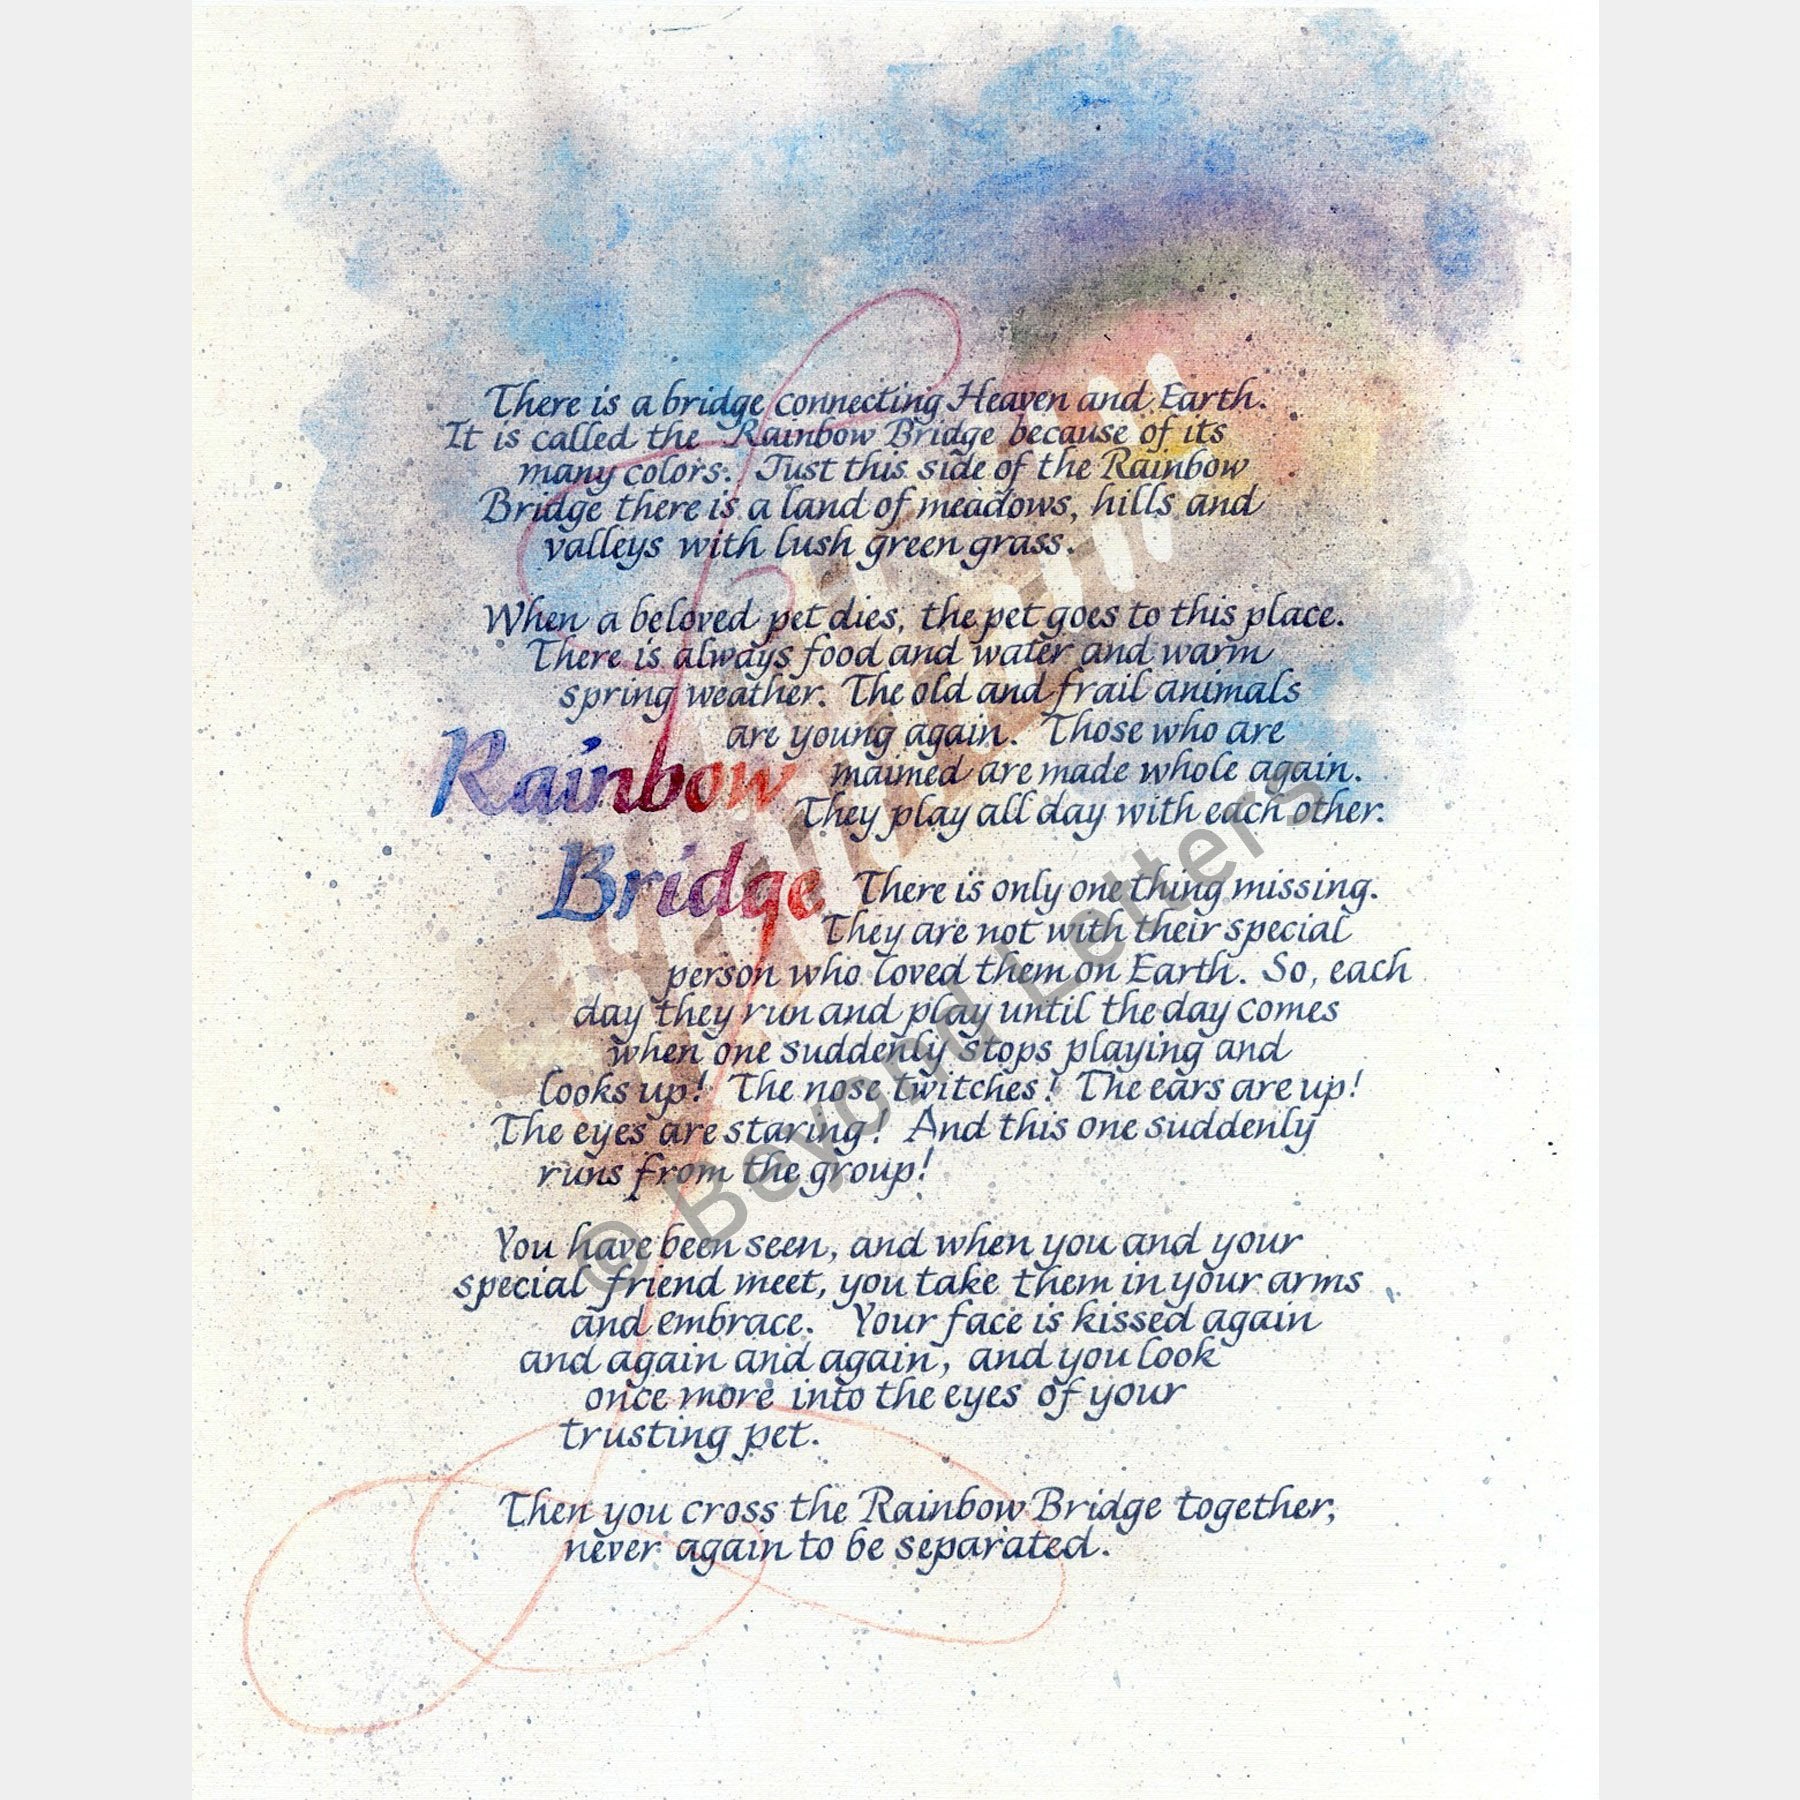 There is a bridge connecting Heaven and Earth.
It is called the Rainbow Bridge because of its
many colors. Just this side of the Rainbow
Bridge there is a land of meadows, hills and
valleys with lush green grass.
When a beloved pet dies, the pet goes to this place.
There is always food and water and warm
spring weather. The old and frail animals
are young again. Those who are
maimed are made whole again.
They play all day with each other.
Rainbow
Bridge
There is only one thing missing.
They are not with their special
person who loved them on Earth. So, each
day they run and play until the day comes
when one suddenly stops playing and
looks up! The nose twitches! The ears are up!
The eyes are staring! And this one suddenly
runs from the group!
You have been seen, and when you and your
special friend meet, you take them in your arms
and embrace. Your face is kissed again
and again and again, and you look
once more into the eyes of your
trusting pet.
Then you cross the Rainbow Bridge together,
never again to be separated.
© Beyond Letters